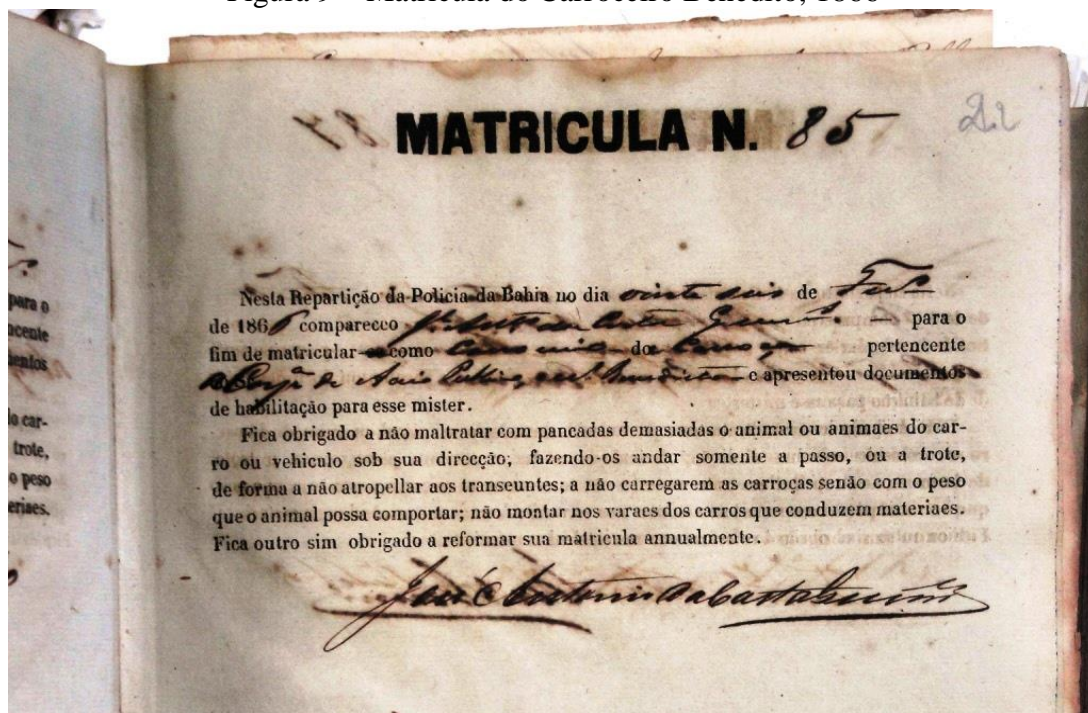 Figura 9 – Matrícula do Carroceiro Benedito, 1866
MATRICULA N. 85
Nesta Repartição da Policia da Bahia no dia vinte seis de
de 1866 compareceo da Costa para o
fim de matricular-se como da Carroça pertencente
a de e apresentou documentos
de habilitação para esse mister.
Fica obrigado a não maltratar com pancadas demasiadas o animal ou animaes do car-
ro ou vehiculo sob sua direcção; fazendo-os andar somente a passo, ou a trote,
de forma a não atropellar aos transeuntes; a não carregarem as carroças senão com o peso
que o animal possa comportar; não montar nos varaes dos carros que conduzem materiaes.
Fica outro sim obrigado a reformar sua matricula annualmente.
José Antonio da Costa Guim.es
para o
ncente
mentos
lo car-
trote,
o peso
eriaes.